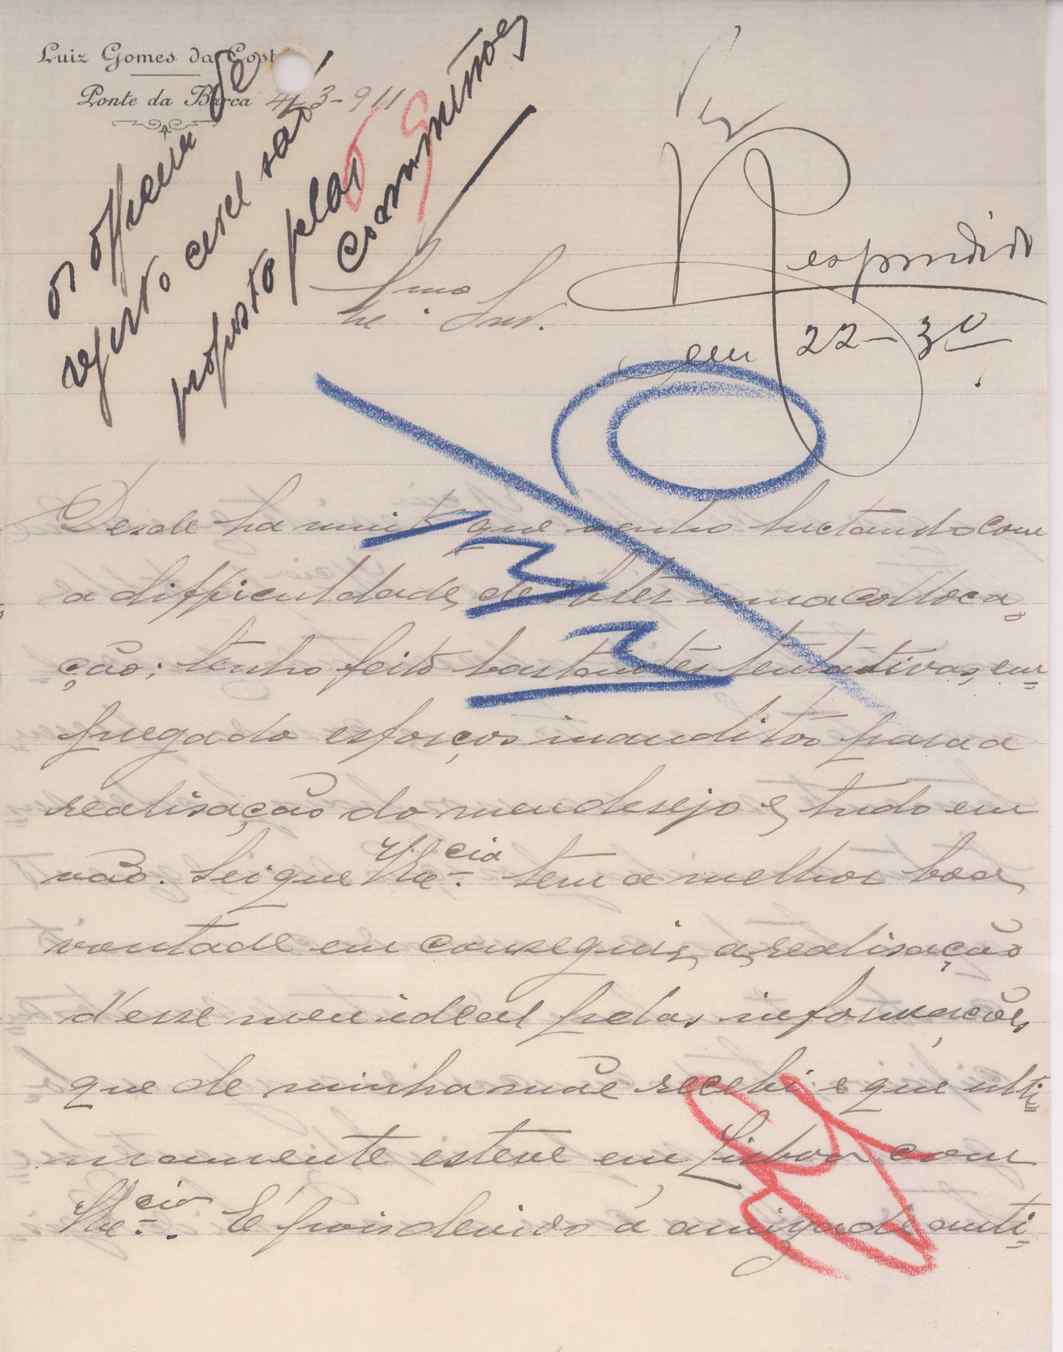 Luiz Gomes da Costa
Ponte da Barca 4-3-911
os officiais de
registo civil são
proposto pelas
commissões
Respondido
em 22-3º
Exmo Snr.
Desde ha muito que venho luctando com
a difficuldade, de obter uma colloca-
ção; tenho feito bastantes tentativas, em-
pregado esforços inauditos para a
realisação do meu desejo e, tudo em
vão. Sei que V. Excia tem a melhor boa
vontade em conseguir, a realisação
d'esse meu ideal pelas informações
que de minha mãe recebi e que ulti-
mamente esteve em Lisboa com
V. Excia. É pois devido á amizade anti-